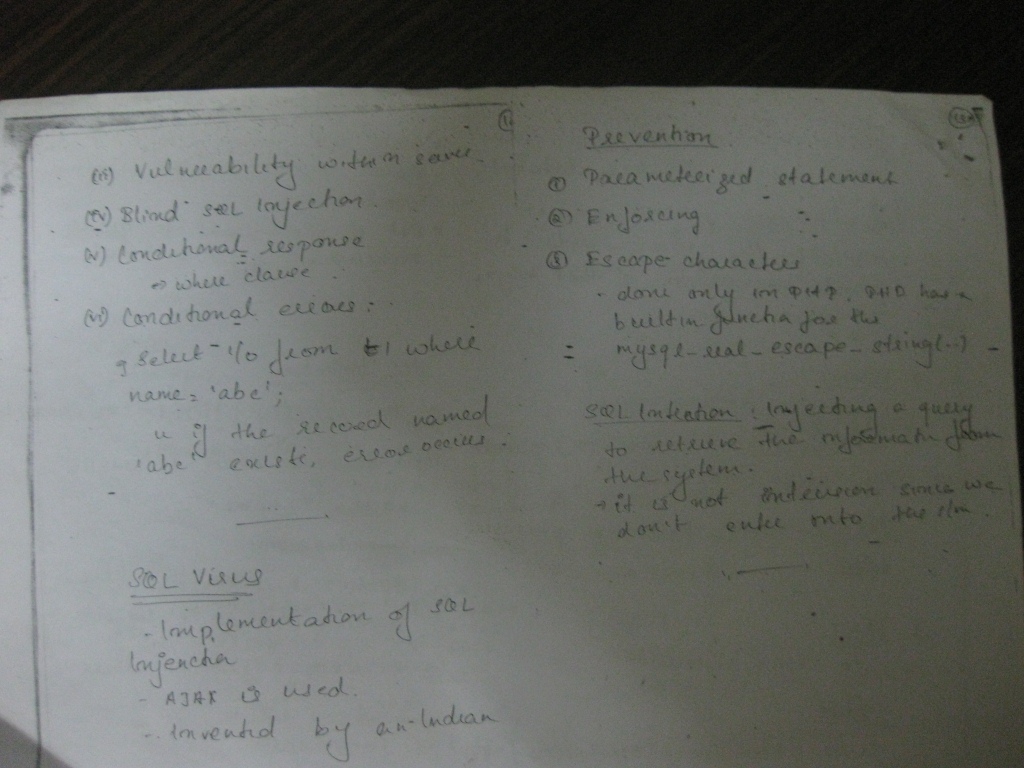 (iii) Vulnerability within server
(iv) Blind SQL Injection
(v) Conditional response
→ where clause
(vi) Conditional errors:
eg select 1/0 from t1 where
name = 'abc';
if the record named
'abc' exists, error occurs.
SQL Virus
- Implementation of SQL
Injencton
- AJAX is used.
- Invented by an Indian
Prevention
① Parameterized statement
② Enforcing
③ Escape characters
- done only in PHP. PHP has a
builtin function for the
mysql_real_escape_string(..)
SQL Intection : Injecting a query
to retrieve the information from
the system.
→ it is not intrusion since we
don't enter into the s/m.